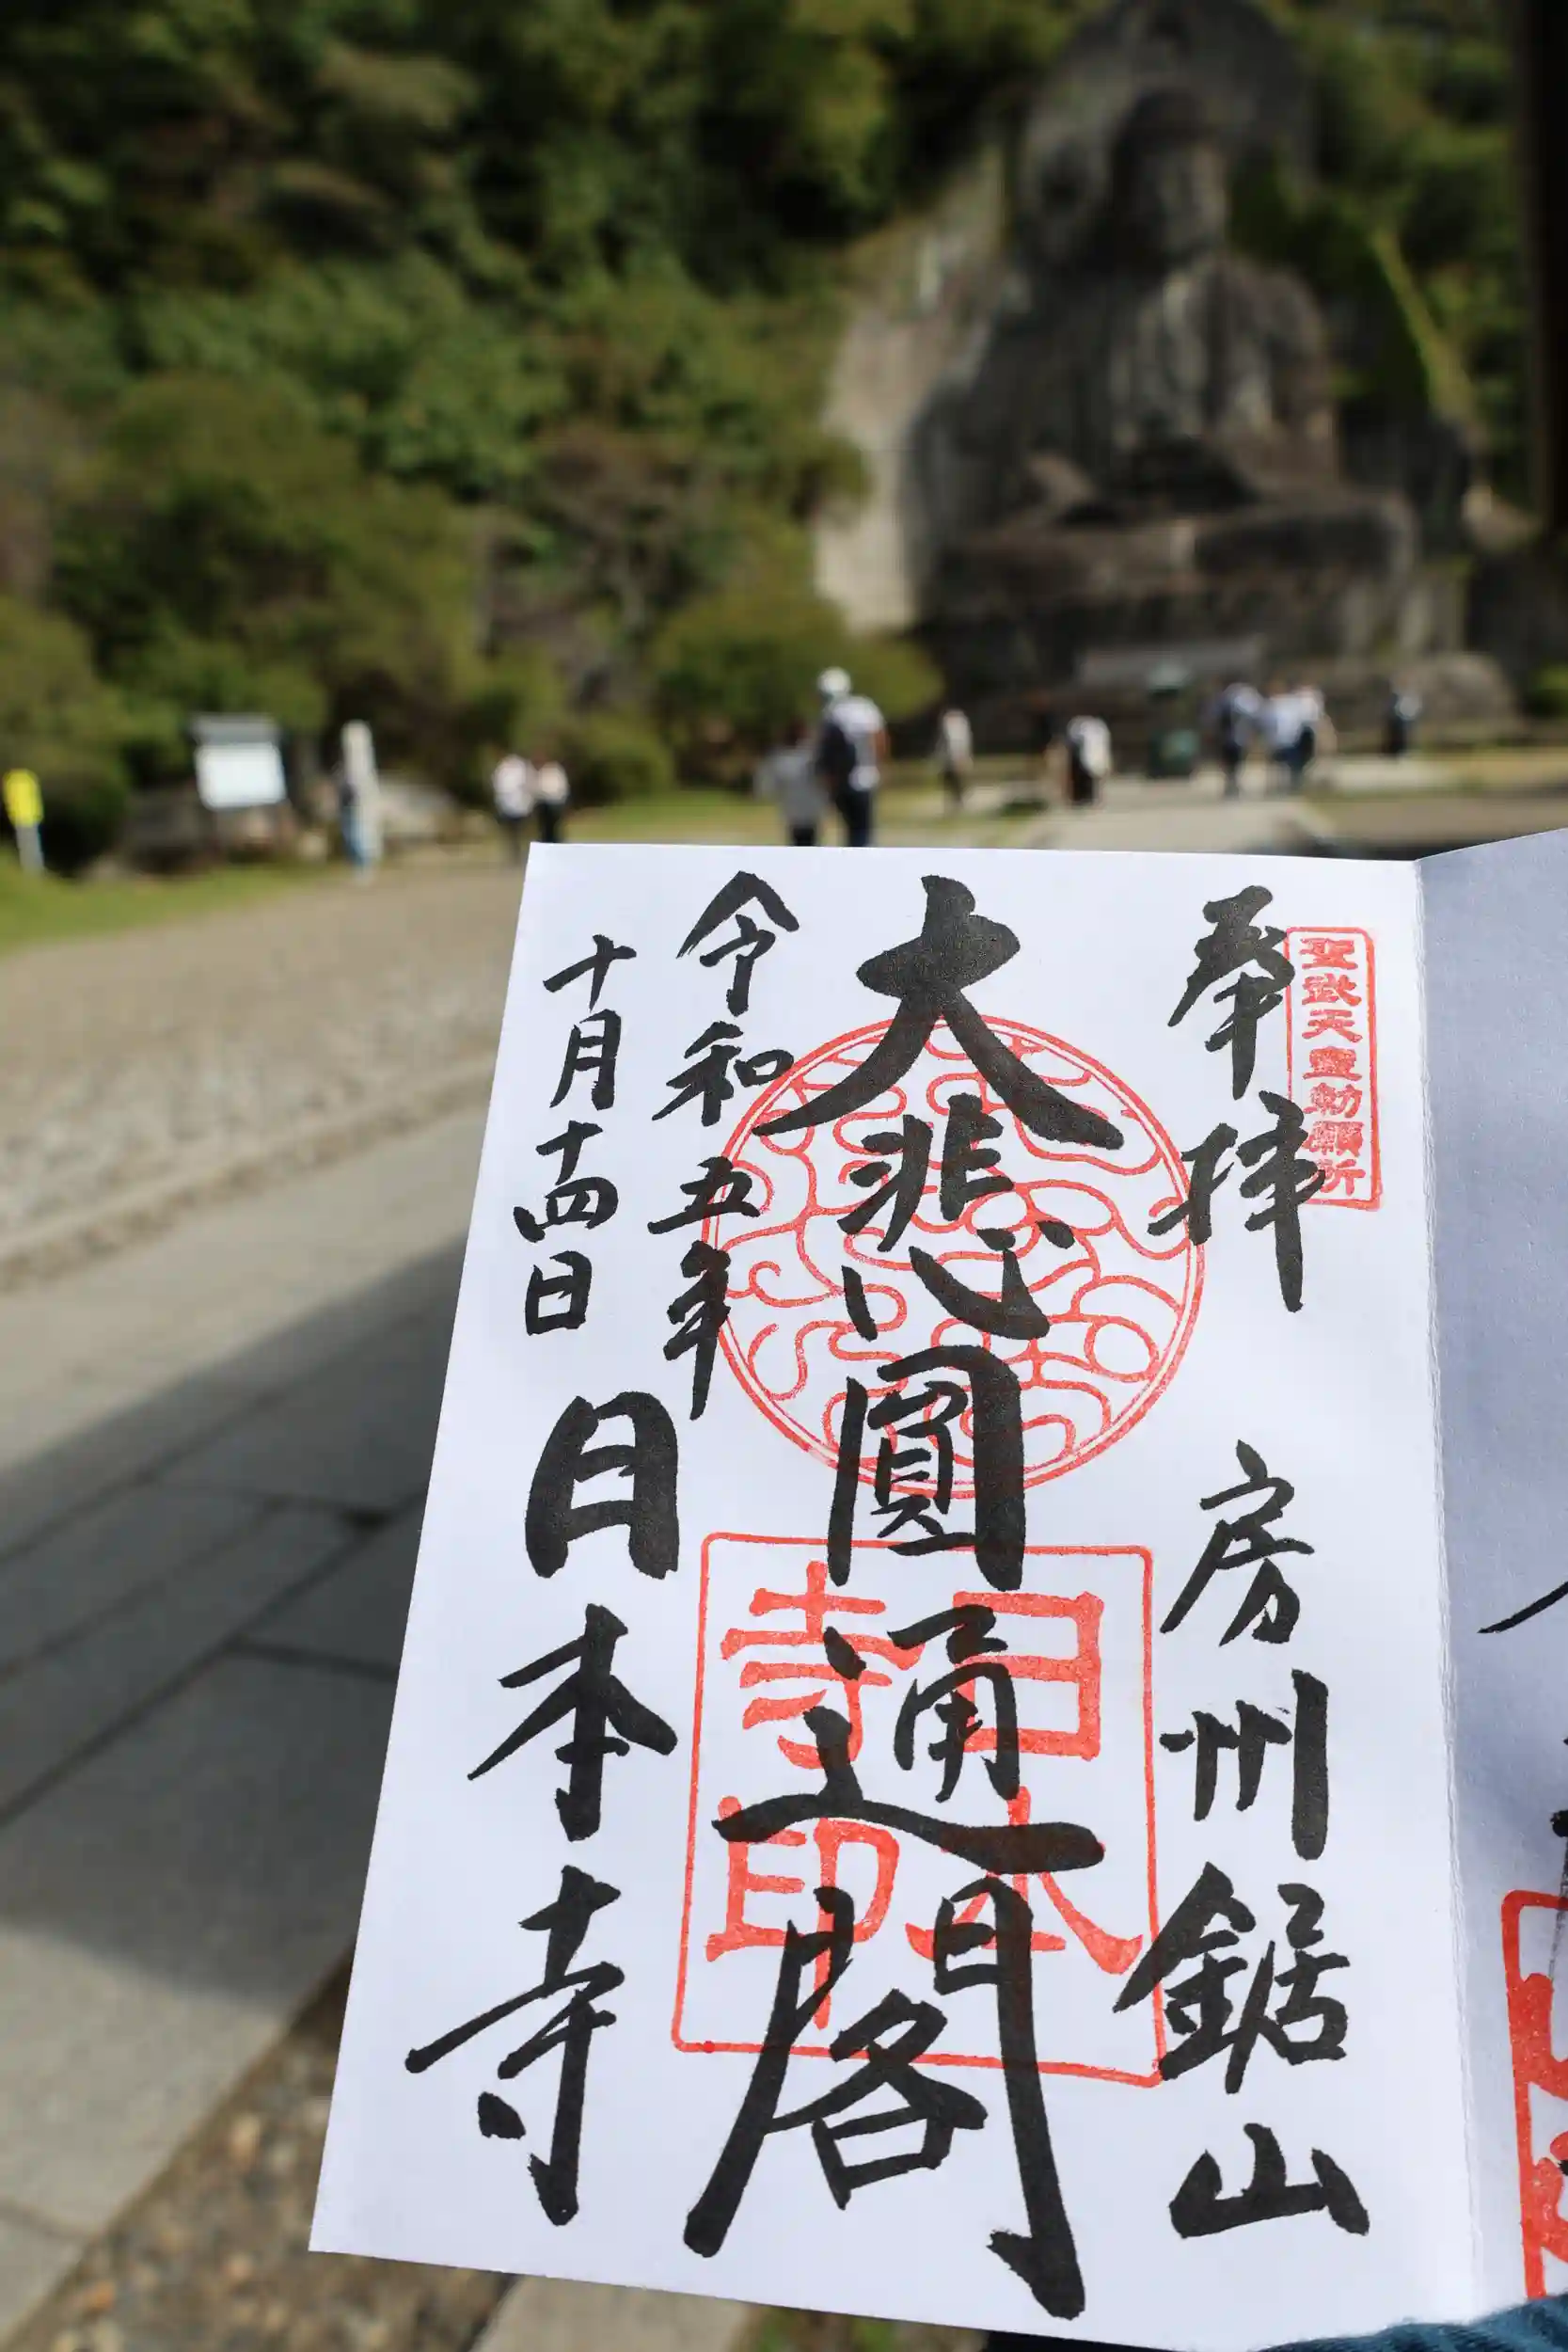 聖武天皇勅願所
奉拝
房州鋸山
大悲圓通閣
日本寺印
令和五年
十月十四日
日本寺